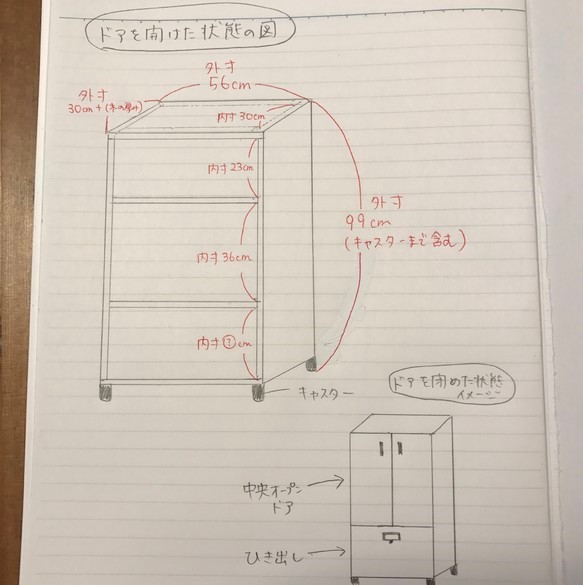 ドアを開けた状態の図
外寸
56cm
外寸
30cm+(木の厚み)
内寸30cm
内寸23cm
外寸
99cm
(キャスターまで含む)
内寸36cm
内寸?cm
キャスター
ドアを閉めた状態
イメージ
中央オープン
ドア
ひき出し